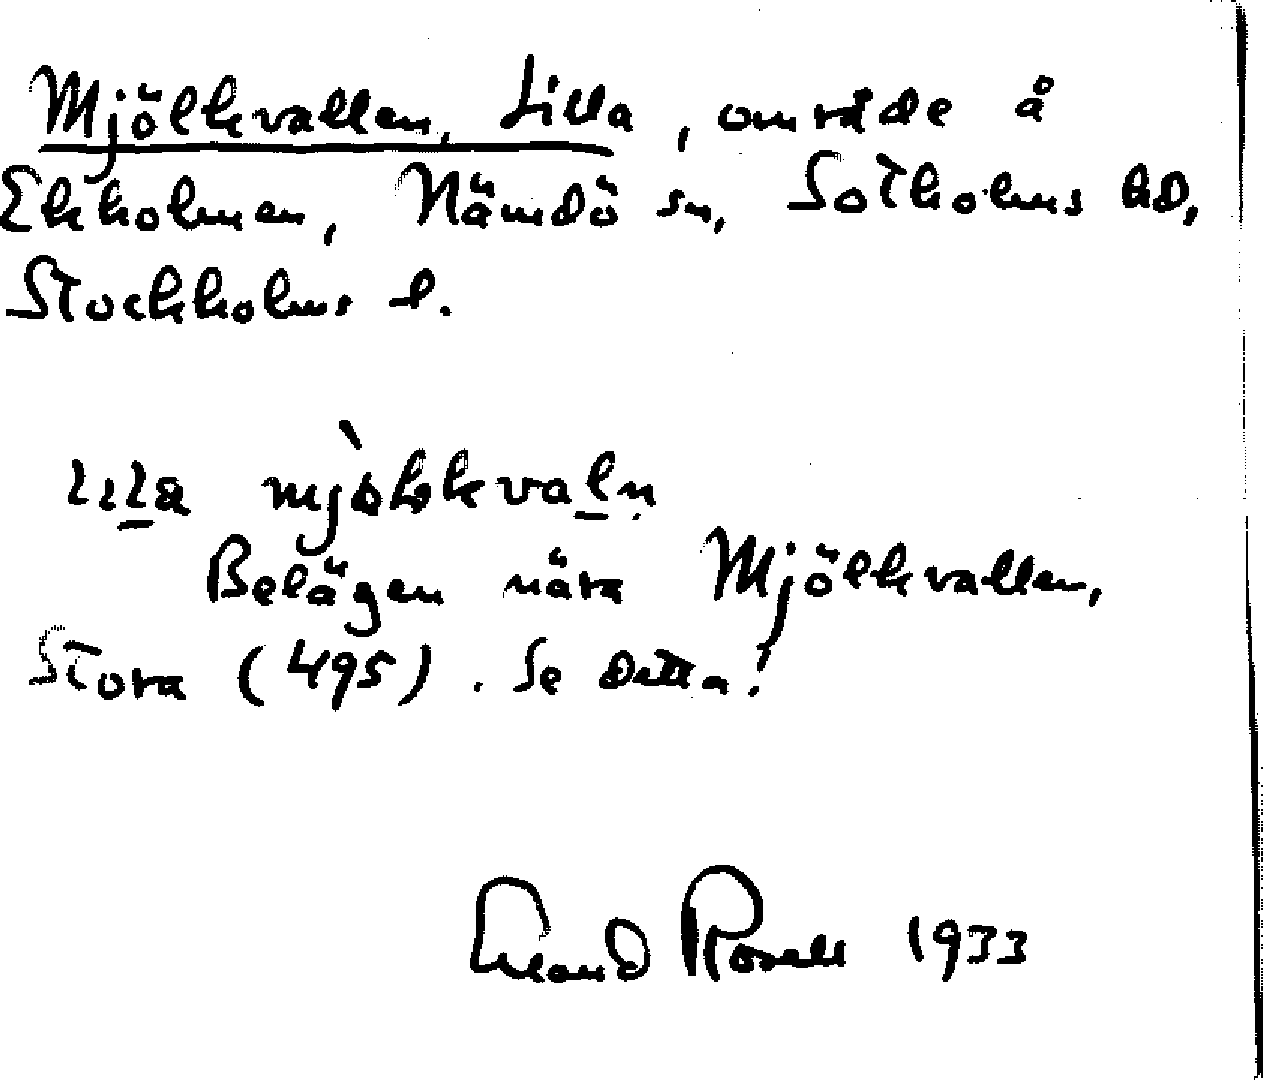 Mjölkvallen, Lilla, område å
Ekholmen, Nämdö sn, Sotholms hd,
Stockholms l.
lila mjölkvaln
Belägen nära Mjölkvallen,
Stora (495). Se detta!
Erland Rosell 1933